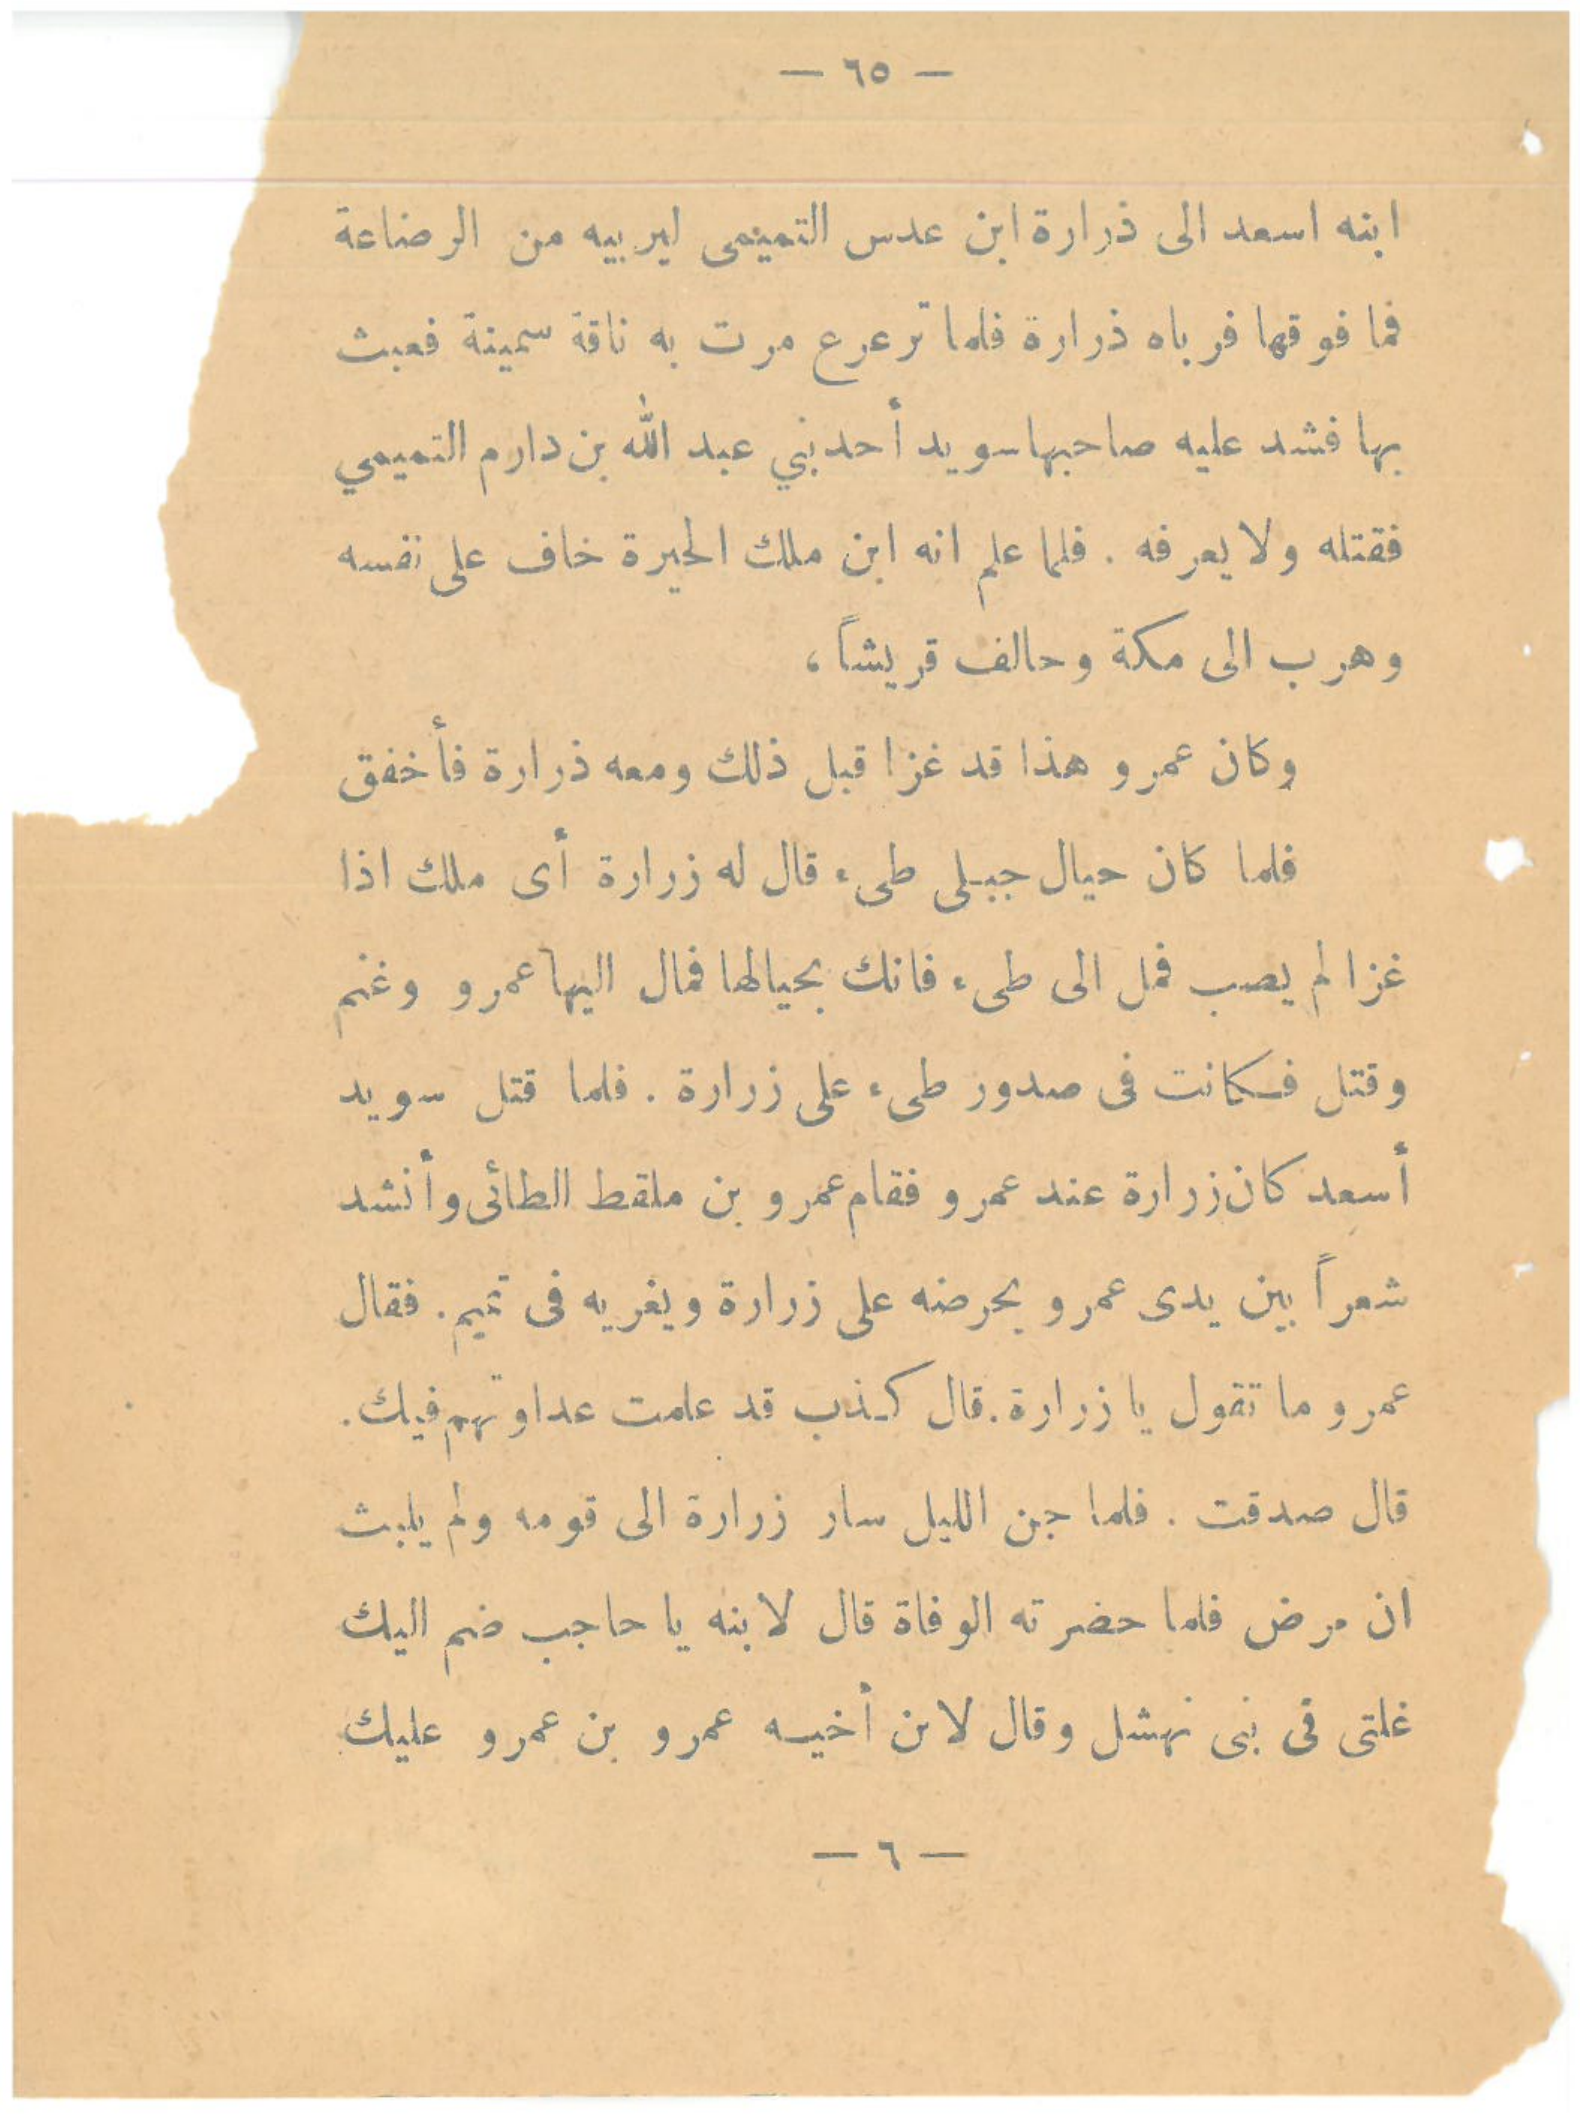 — ٦٥ —
ابنه اسعد الى ذرارة ابن عدس التميمى ليربيه من الرضاعة
فما فوقها فرباه ذرارة فلما ترعرع مرت به ناقة سمينة فعبث
بها فشد عليه صاحبها سويد أحد بني عبد الله بن دارم التميمي
فقتله ولا يعرفه . فلما علم انه ابن ملك الحيرة خاف على نفسه
وهرب الى مكة وحالف قريشاً ،
وكان عمرو هذا قد غزا قبل ذلك ومعه ذرارة فأخفق
فلما كان حيال جبلى طىء قال له زرارة أى ملك اذا
غزا لم يصب فمل الى طىء فانك بحيالها فمال اليها عمرو وغنم
وقتل فكانت فى صدور طىء على زرارة . فلما قتل سويد
أسعد كان زرارة عند عمرو فقام عمرو بن ملقط الطائى وأنشد
شعراً بين يدى عمرو يحرضه على زرارة ويغريه فى تميم . فقال
عمرو ما تقول يا زرارة . قال كذب قد علمت عداوتهم فيك .
قال صدقت . فلما جن الليل سار زرارة الى قومه ولم يلبث
ان مرض فلما حضرته الوفاة قال لابنه يا حاجب ضم اليك
غلتى فى بنى نهشل وقال لابن أخيه عمرو بن عمرو عليك
— ٦ —